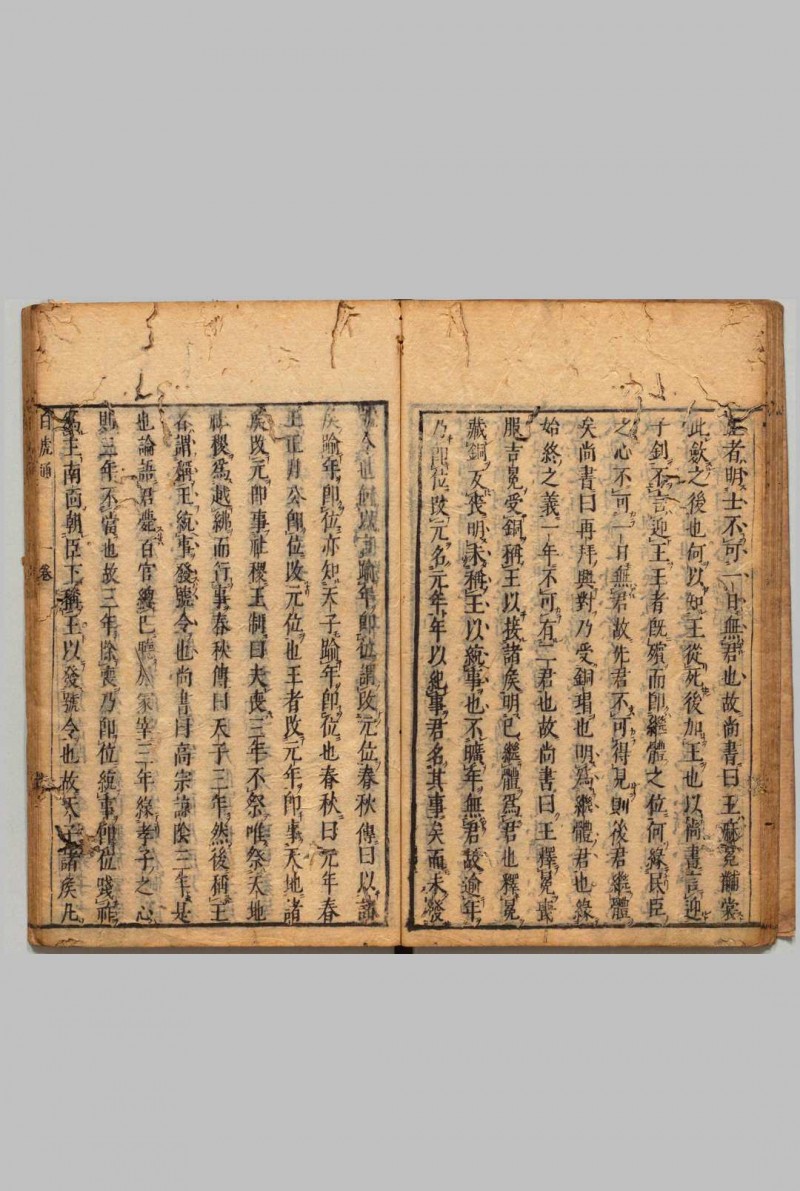 王者明士不可一日無君也故尚書曰王麻冕黼裳
此斂之後也何以知王從死後加王也以尚書言迎
子釗不言迎王王者旣殯而卽繼體之位何緣民臣
之心不可一日無君故先君不可得見則後君繼體
矣尚書曰再拜興對乃受銅瑁也明爲繼體君也緣
始終之義一年不可有二君也故尚書曰王釋冕喪
服吉冕受銅稱王以接諸矦明已繼體爲君也釋冕
藏銅反喪明未稱王以統事也不曠年無君故逾年
乃卽位改元名元年年以紀事君名其事矣而未發
號令也何以言踰年卽位謂改元位春秋傳曰以諸
矦踰年卽位亦知天子踰年卽位也春秋曰元年春
王正月公卽位改元位也王者改元年卽事天地諸
矦改元卽事社稷王制曰夫喪三年不祭唯祭天地
社稷爲越紼而行事春秋傳曰天子三年然後稱王
者謂稱王統事發號令也尚書曰高宗諒陰三年是
也論語君薨百官總已聽於冢宰三年緣孝子之心
則三年不當也故三年除喪乃卽位統事卽位踐祚
爲主南面朝臣下稱王以發號令也故天子諸矦凡
白虎通 一卷